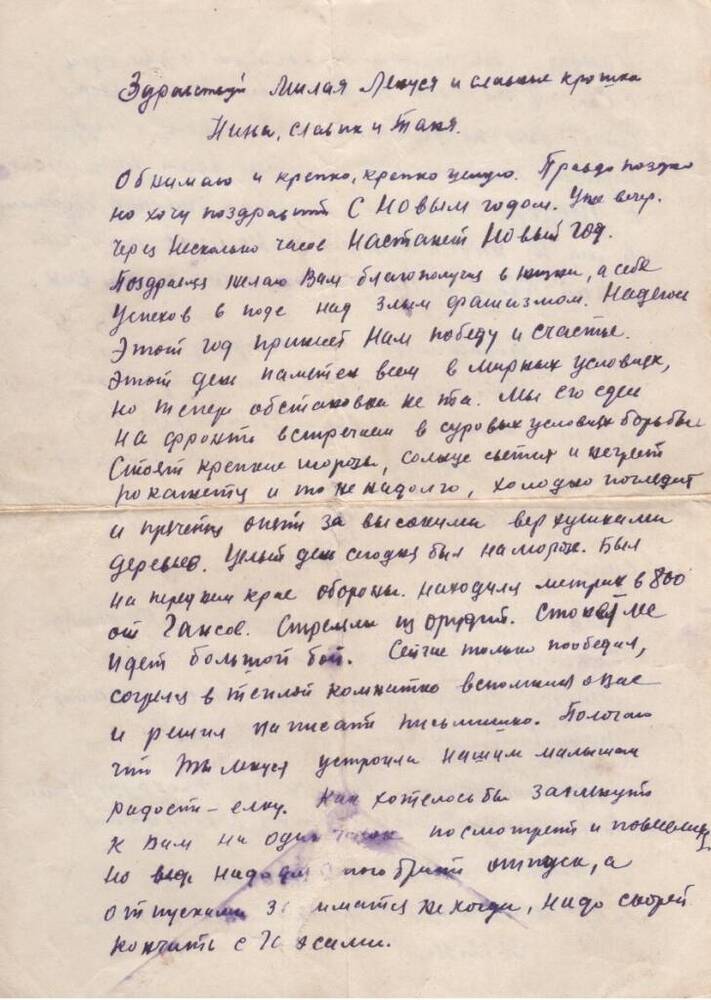 Здравствуй Милая Ленуся и славные крошки
Нина, Славик и Таня.
Обнимаю и крепко, крепко целую. Правда поздно
но хочу поздравить С Новым годом. Уже вечер.
Через несколько часов Настанет Новый год.
Поздравляя желаю Вам благополучия в жизни, а себе
успехов в победе над злым фашизмом. Надеюсь
Этот год принесет Нам победу и счастье.
Этот день памятен всем в мирных условиях,
но теперь обстановка не та. Мы его здесь
на фронте встречаем в суровых условиях борьбы
Стоят крепкие морозы, солнце светит и не греет
покажется и то не надолго, холодно поглядит
и прячется опять за высокими верхушками
деревьев. Целый день сегодня был на морозе. Был
на переднем крае обороны. находился метрах в 800
от Гансов. Стреляли из орудий.
Идет большой бой. Сейчас только пообедал,
согрелся в теплой комнатке вспомнил о вас
и решил написать письмишко. Полагаю
что Ты Ленуся устроила нашим малышам
радость - елку. Как хотелось бы заглянуть
к Вам на один часок посмотреть и повеселиться
но ведь надо для этого брать отпуск, а
отпусками заниматься некогда, надо скорей
кончить с Гансами.